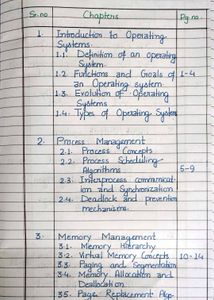 Sr.no Chapters Pg.no.
1. Introduction to Operating
Systems.
1.1. Definition of an operating
System.
1.2 Functions and Goals of 1-4
an Operating system
1.3. Evolution of Operating
Systems
1.4. Types of Operating System
2. Process Management
2.1. Process Concepts
2.2. Process Scheduling
Algorithms 5-9
2.3. Interprocess communicat-
ion and Synchronization
2.4. Deadlock and prevention
mechanisms.
3. Memory Management
3.1. Memory Hierarchy
3.2. Virtual Memory Concepts 10-14
3.3. Paging and Segmentation
3.4. Memory Allocation and
Deallocation
3.5. Page Replacement Algo-